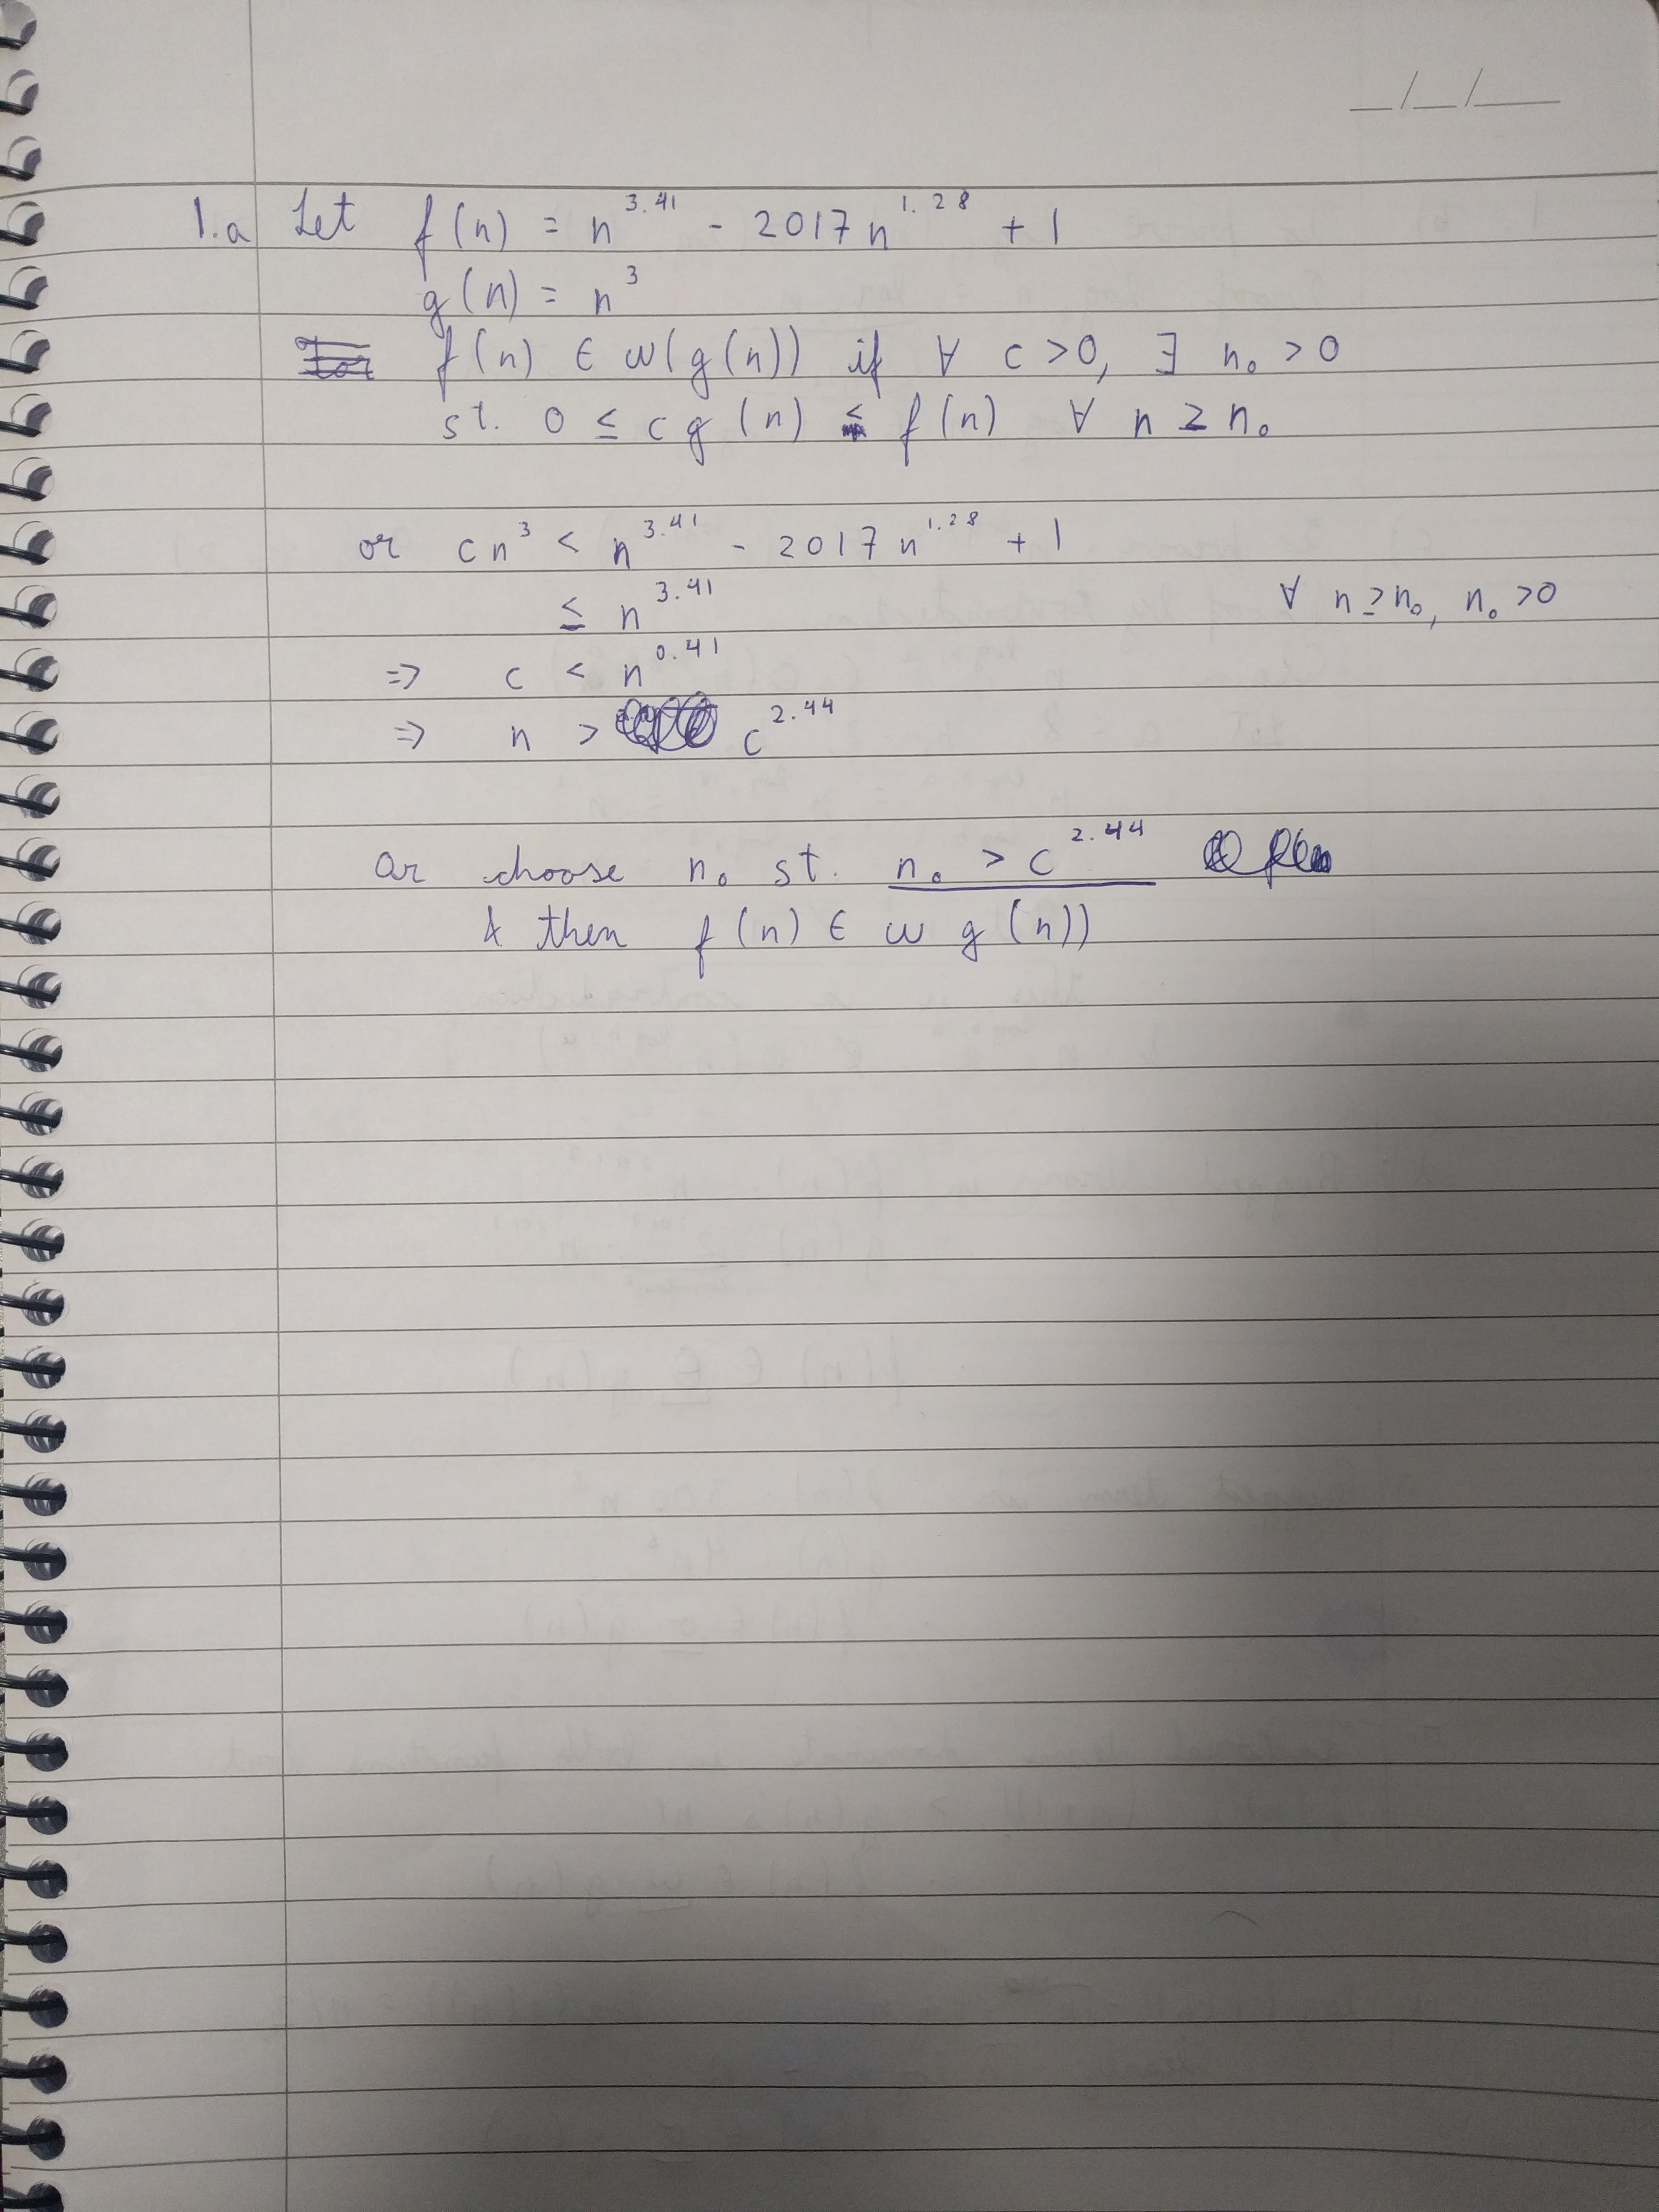 __/__/____
1.a Let f(n) = n^3.41 - 2017n^1.28 + 1
g(n) = n^3
f(n) ∈ ω(g(n)) if ∀ c >0, ∃ n₀ >0
st. 0 ≤ cg(n) < f(n) ∀ n ≥ n₀
or cn^3 < n^3.41 - 2017n^1.28 + 1
≤ n^3.41 ∀ n ≥ n₀, n₀ >0
=> c < n^0.41
=> n > c^2.44
or choose n₀ st. n₀ > c^2.44
& then f(n) ∈ ω g(n))